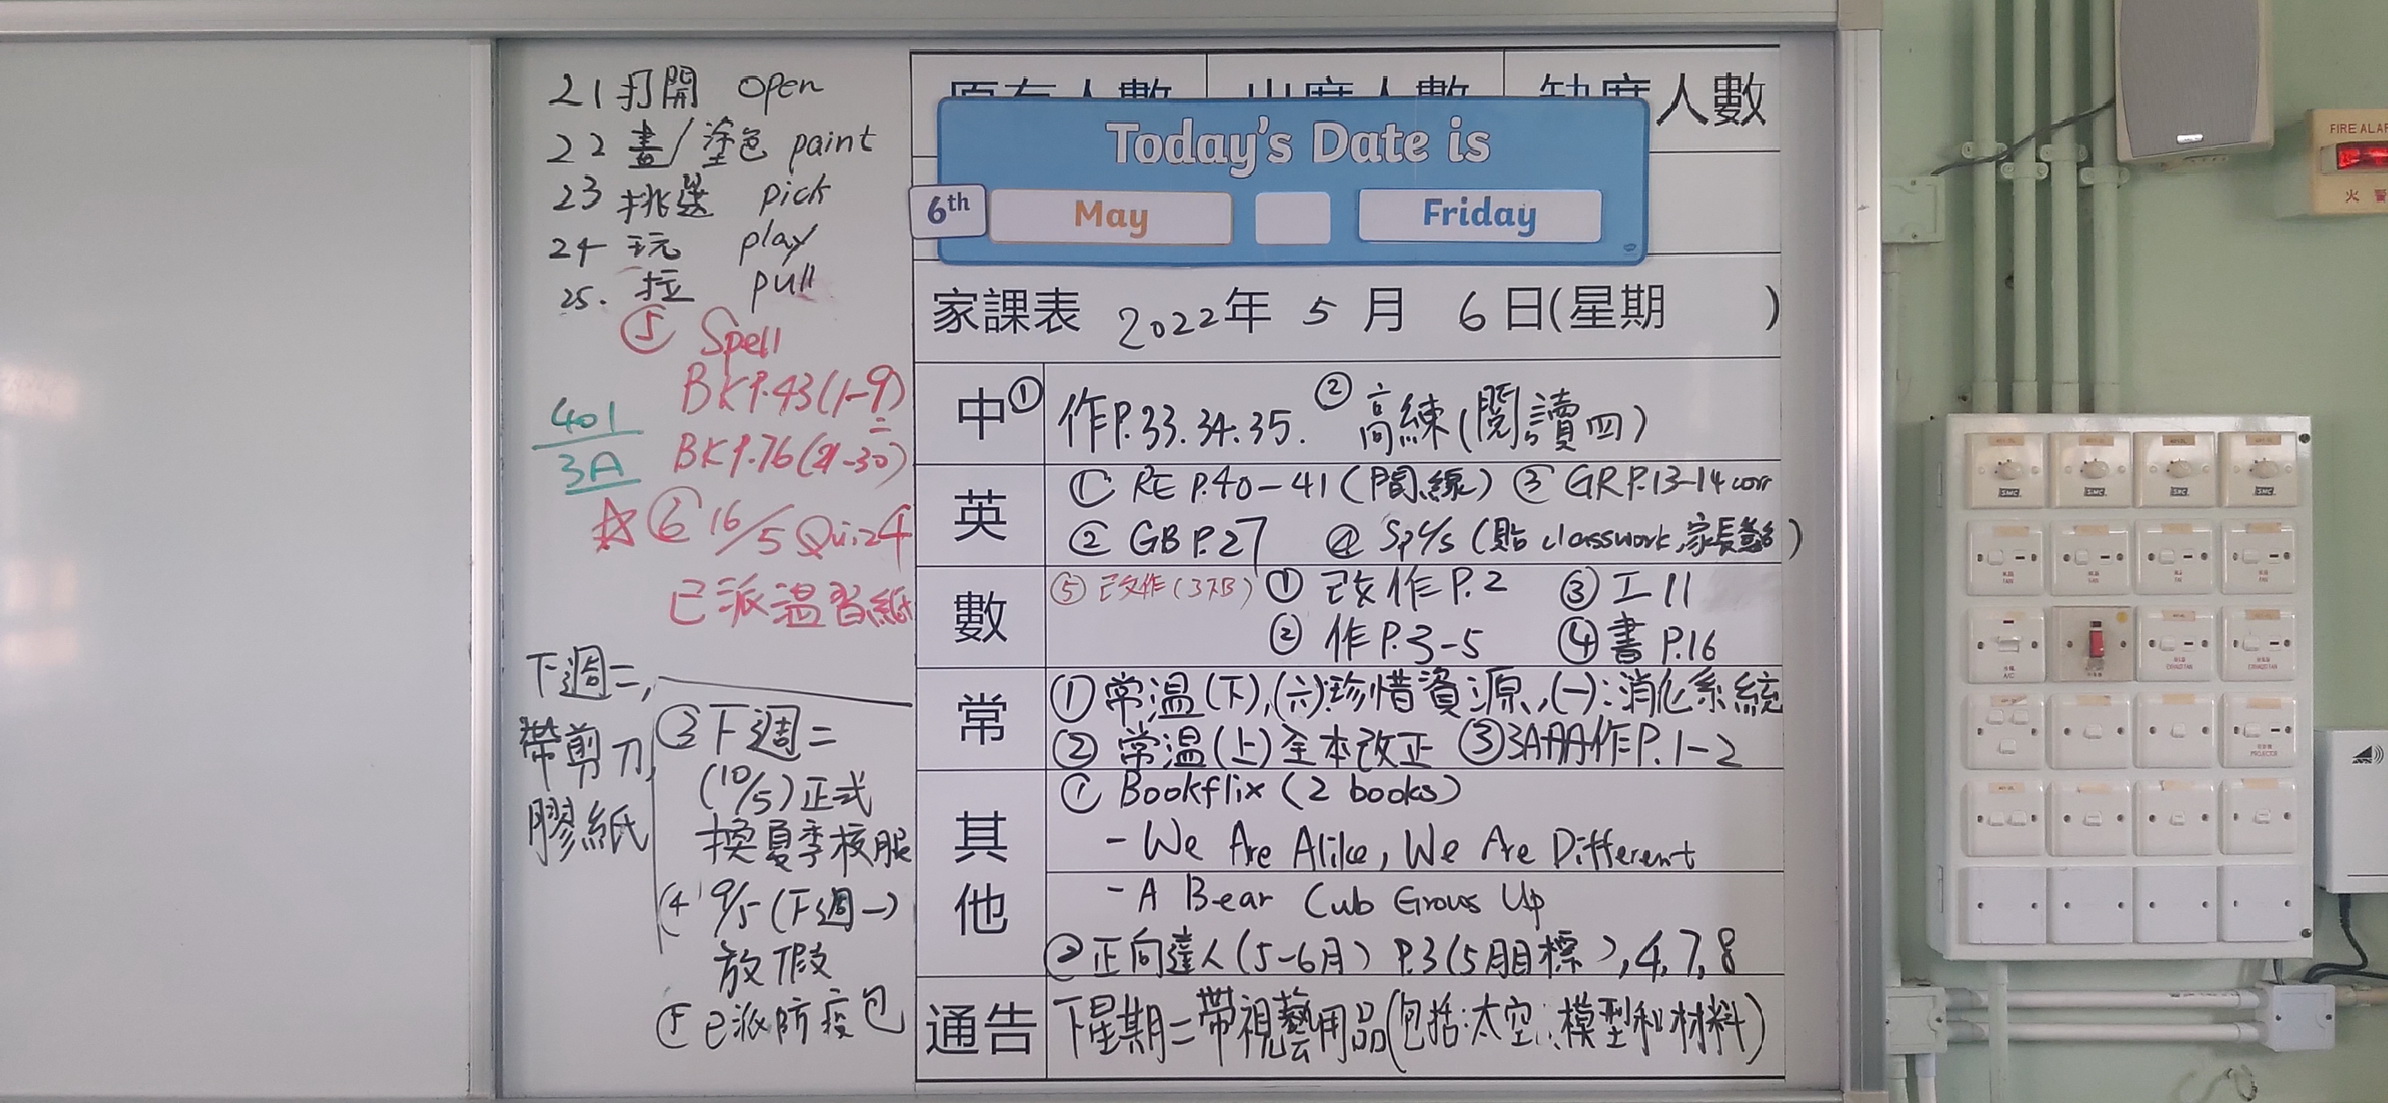 21 打開 open
22 畫/塗色 paint
23 挑選 pick
24 玩 play
25. 拉 pull
⑤ Spell
BK P.43 (1-9)
BK P.76 (21-30)
401
3A
☆ ⑥ 16/5 Quiz 4
已派溫習紙
下週二,
帶剪刀,
膠紙
③ 下週二
(10/5) 正式
換夏季校服
④ 9/5 (下週一)
放假
⑤ 已派防疫包
原有人數 出席人數 缺席人數
Today's Date is
6th May Friday
家課表 2022年 5 月 6 日(星期 )
中 ① 作P.33.34.35. ② 高練(閱讀四)
英 ① RE P.40-41 (間線) ③ GR P.13-14 corr
② GB P.27 ④ (貼 classwork, 家長簽)
數 ⑤ 改作(3下B) ① 改作P.2 ③ 工11
② 作P.3-5 ④ 書P.16
常 ① 常溫(下),(六):珍惜資源,(一):消化系統
② 常溫(上)全本改正 ③ 3A冊作P.1-2
其他 ① Bookflix (2 books)
- We Are Alike, We Are Different
- A Bear Cub Grows Up
② 正向達人(5-6月) P.3(5月目標),4,7,8
通告 下星期二帶視藝用品(包括:太空模型和材料)
FIRE ALAR
火 警